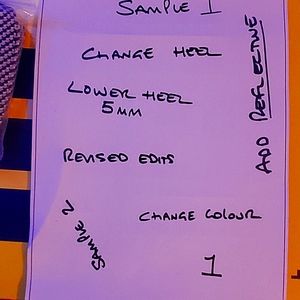 SAMPLE 1
CHANGE HEEL
LOWER HEEL
5MM
REVISED EDITS
SAMPLE 2
CHANGE COLOUR
1
ADD REFLECTIVE